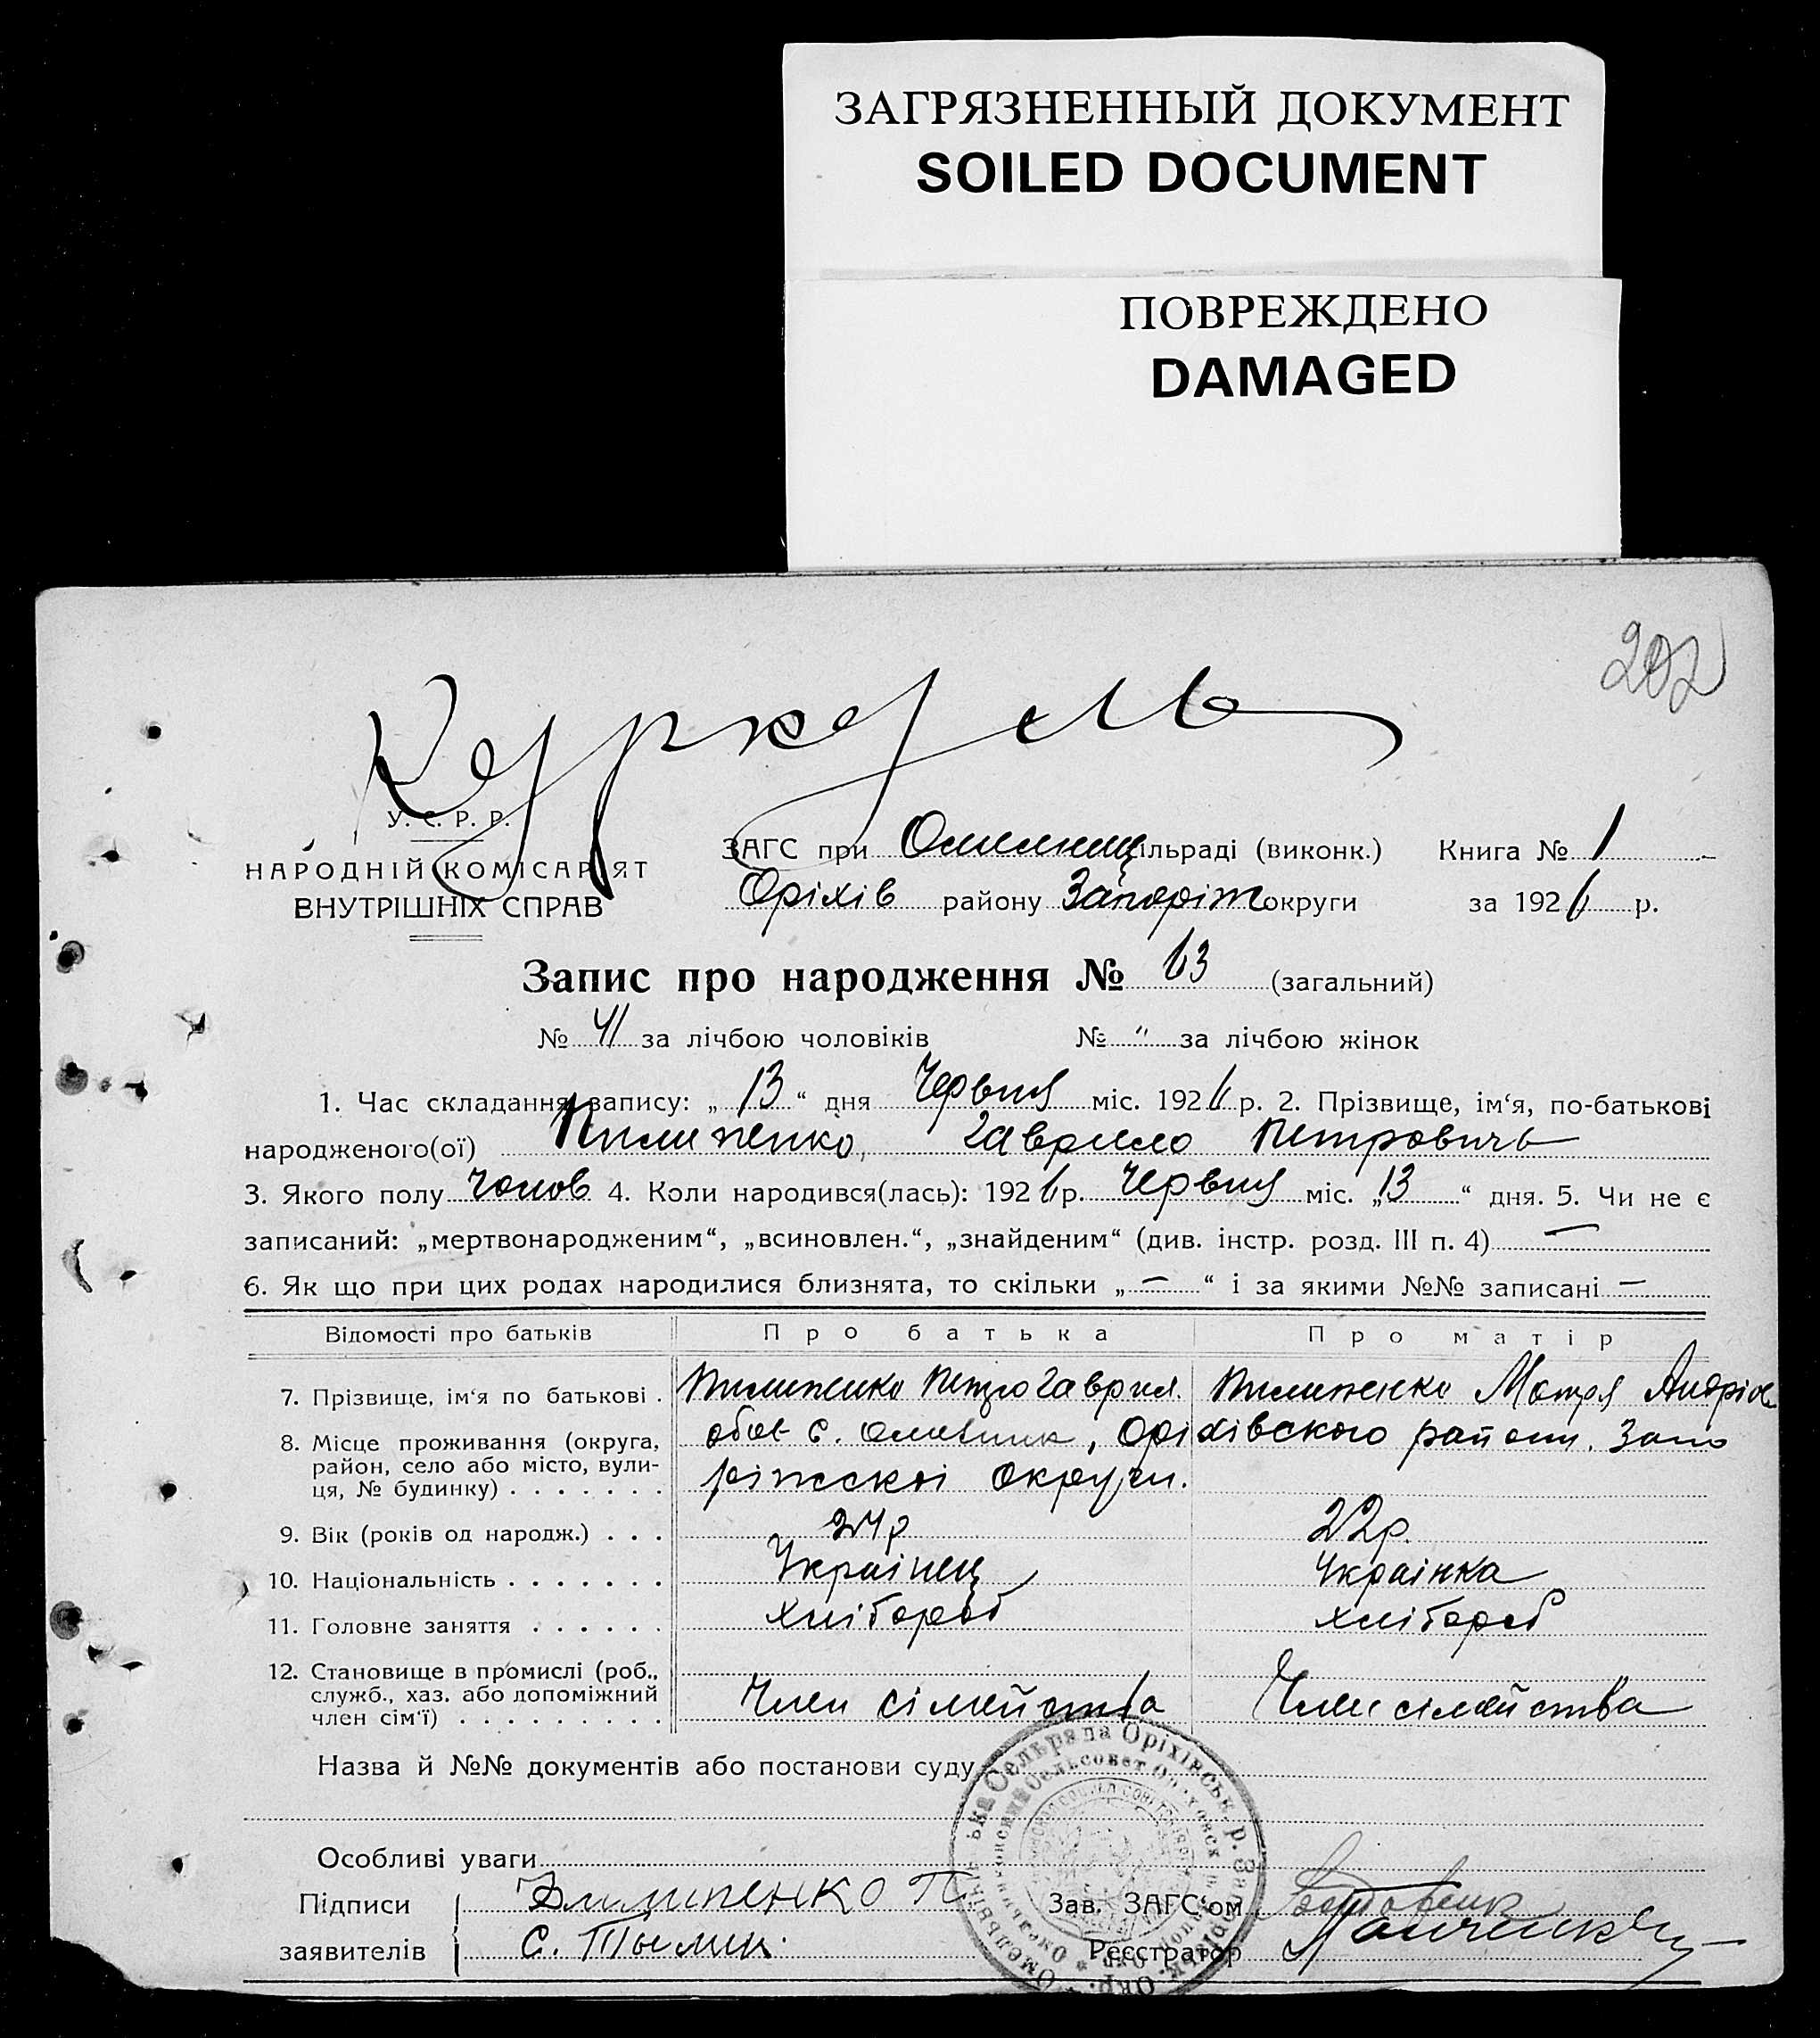 ЗАГРЯЗНЕННЫЙ ДОКУМЕНТ
SOILED DOCUMENT
ПОВРЕЖДЕНО
DAMAGED
202
Куркуль
У. С. Р. Р.
НАРОДНІЙ КОМІСАРІЯТ
ВНУТРІШНІХ СПРАВ
ЗАГС при Омельниц сільраді (виконк.) Книга № 1
Оріхів району Запоріж округи за 1926 р.
Запис про народження № 63 (загальний)
№ 41 за лічбою чоловіків № " за лічбою жінок
1. Час складання запису: „13“ дня Червня міс. 1926 р. 2. Прізвище, ім‘я, по-батькові
народженого(ої) Пилипенко, Гаврило Петровичь
3. Якого полу Чолов 4. Коли народився(лась): 1926 р. Червня міс. „13“ дня. 5. Чи не є
записаний: „мертвонародженим“, „всиновлен.“, „знайденим“ (див. інстр. розд. III п. 4) —
6. Як що при цих родах народилися близнята, то скільки „—“ і за якими №№ записані —
Відомості про батьків Про батька Про матір
7. Прізвище, ім‘я по батькові . Пилипенко Петро Гаврил. Пилипенко Мотря Андріє
8. Місце проживання (округа, район, село або місто, вулиця, № будинку) . . . . . . . обоє с. Омельник, Оріхівского району. Запо
ріжскоі округи.
9. Вік (років од народж.) . . . 24р 22р.
10. Національність . . . . . . . Украінец Украінка
11. Головне заняття . . . . . . хлібороб хлібороб
12. Становище в промислі (роб., служб., хаз. або допоміжний член сім‘ї) . . . . . . . . . Член сімейства Член сімейства
Назва й №№ документів або постанови суду
Особливі уваги
Підписи Пилипенко П Зав. ЗАГС‘ом
заявителів С. Реєстратор
Омельницька Сельрада Оріхівськ. р. Запорізьк. Окр.